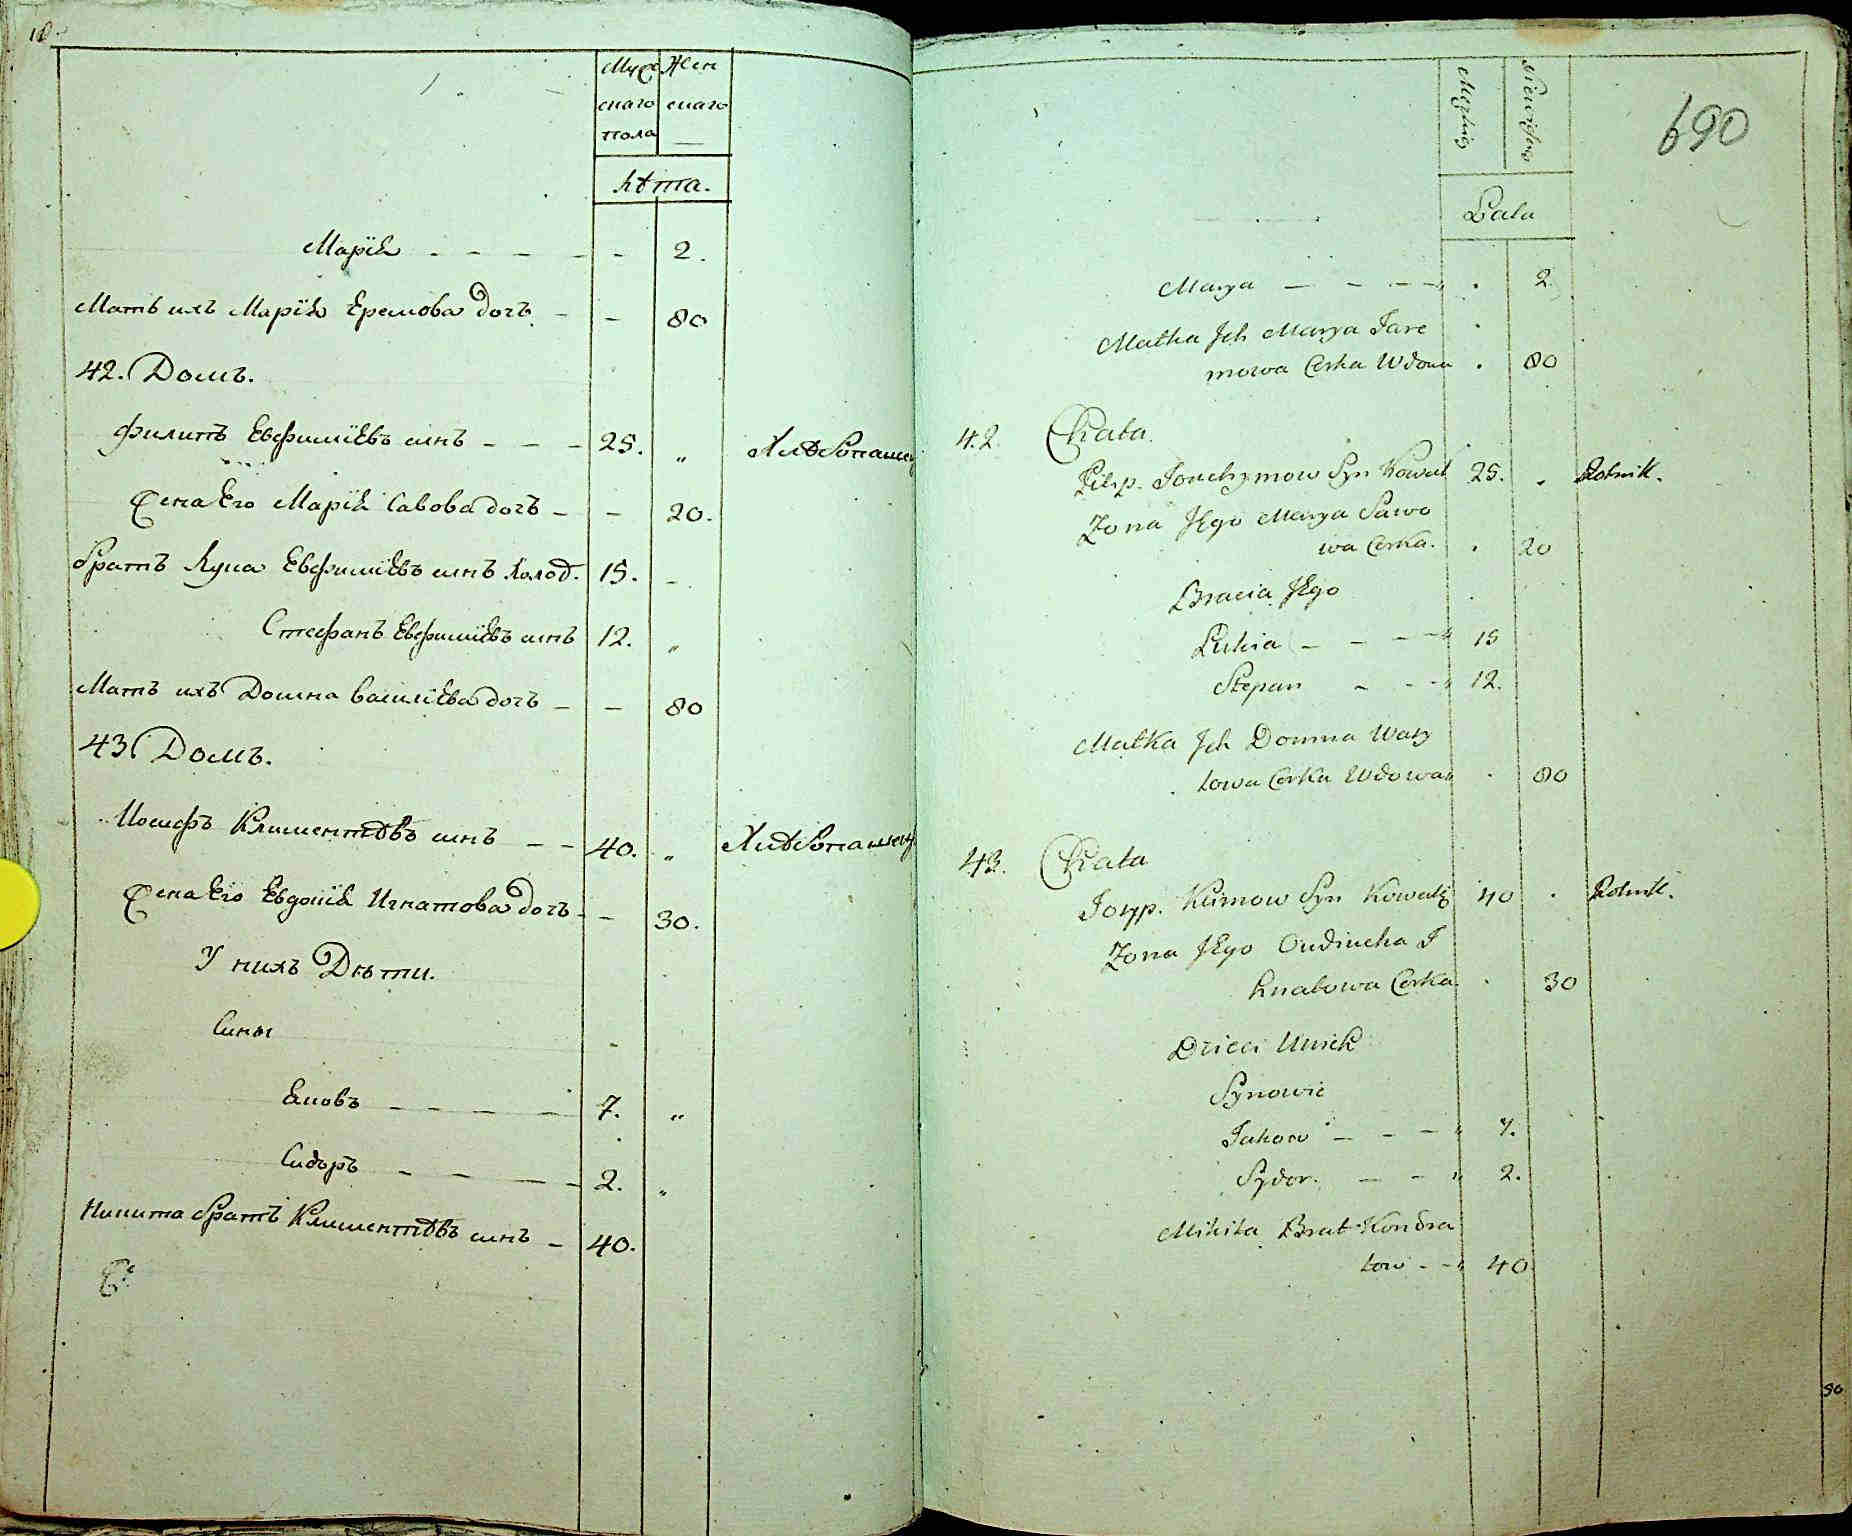 Муж Жен
скаго скаго
пола
лѣта.
Марія 2.
Мать ихъ Марія Еремова дочь 80
42. Домъ.
Филипъ Евфиміевъ синъ 25. „ Хлѣбопашец
Жена Его Марія Савова дочь 20.
братъ Лука Евфиміевъ синъ холод. 15.
Стефанъ Евфиміевъ синъ 12. „
Мать ихъ Домна Василіева дочь 80
43 Домъ.
Иосифъ Климентѣвъ синъ 40. „ Хлѣбопашец
Жена Его Евдокія Игнатова дочь 30.
У нихъ Дѣти.
Сины
Яковъ 7. „
Сидоръ 2. „
Никита братъ Климентѣвъ синъ 40.
690
Męzkie Niewieście
Lata
Marya 2
Matka Jch Marya Jare
mowa Corka Wdowa 80
42. Chata
Pilip. Jouchymow Syn Kowal 25. Rolnik.
Zona JEgo Marya Sawo
wa Corka. 20
Bracia JEgo
Lukia 15
Stepan 12.
Matka Jch Domna Wasy
lowa Corka Wdowa 80
43. Chata
Josyp. Klimow Syn Kowal 40 Rolnik.
Zona JEgo Oudiucha J
hnatowa Corka 30
Dzieci Unich
Synowie
Jakow 7.
Sydor. 2.
Mikita Brat Kondra
tow 40
90